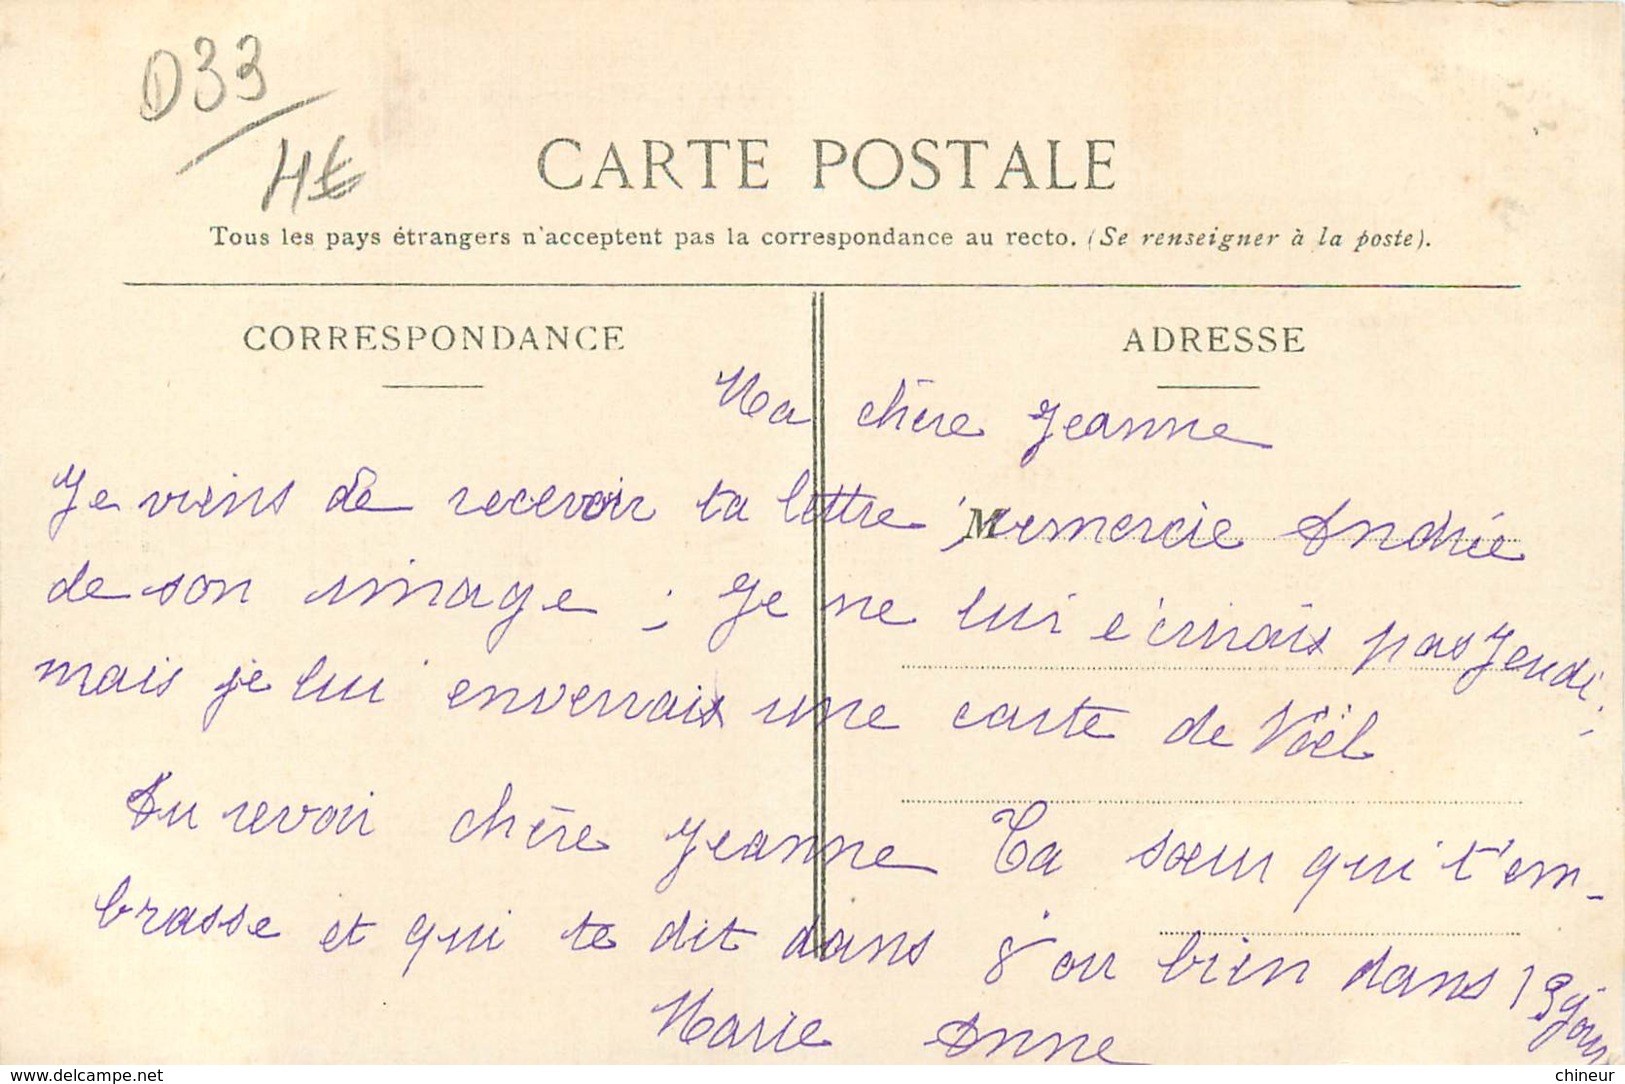 D33
4€
CARTE POSTALE
Tous les pays étrangers n'acceptent pas la correspondance au recto. (Se renseigner à la poste).
CORRESPONDANCE
ADRESSE
Ma chère Jeanne
Je viens de recevoir ta lettre, M remercie Andrée
de son image ; Je ne lui écrirais pas Jeudi ;
mais je lui enverrais une carte de Noël
Au revoir chère Jeanne Ta sœur qui t'em-
brasse et qui te dit dans 8 ou bien dans 19 jours
Marie Anne
delcampe.net
chineur